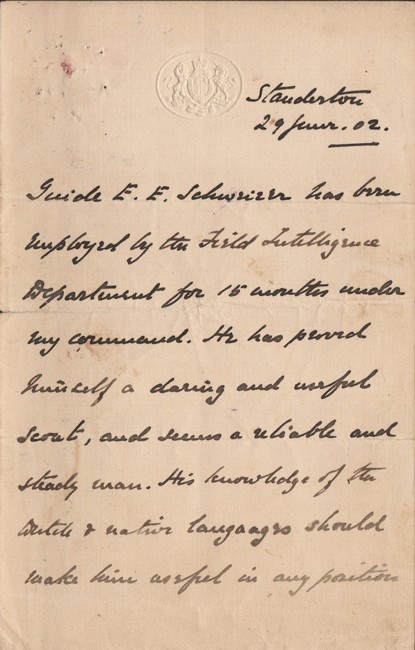 Standerton
29 June. 02.
Guide E. E. Schweizer has been
employed by the Field Intelligence
Department for 15 months under
my command. He has proved
himself a daring and useful
scout, and seems a reliable and
steady man. His knowledge of the
Dutch & native languages should
make him useful in any position